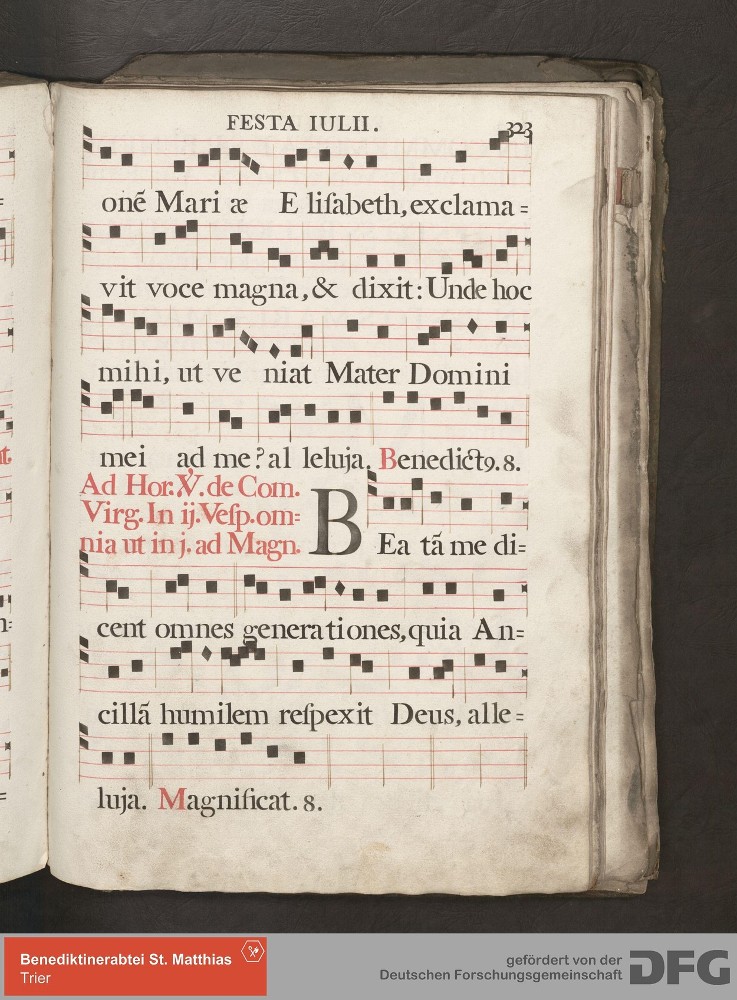 FESTA IULII. 323
onẽ Mari æ E liſabeth, exclama =
vit voce magna, & dixit: Unde hoc
mihi, ut ve niat Mater Domini
mei ad me? al leluja. Benedictꝯ. 8.
Ad Hor. ℣. de Com.
Virg. In ij. Veſp. om=
nia ut in j. ad Magn.
BEa tã me di=
cent omnes generationes, quia An=
cillã humilem reſpexit Deus, alle =
luja. Magnificat. 8.
Benediktinerabtei St. Matthias
Trier
gefördert von der
Deutschen Forschungsgemeinschaft
DFG